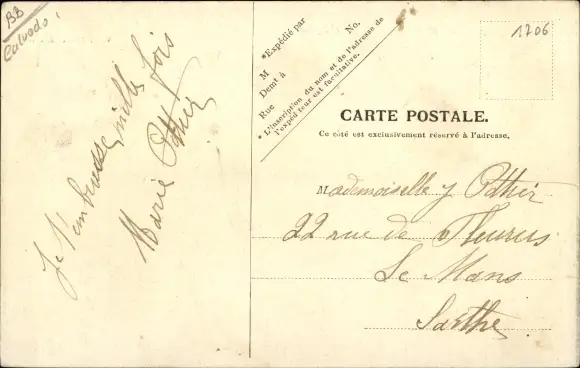 BB
Calvados
Je t'embrasse mille fois
Marie Pottier
*Expédié par
M No.
Demt à
Rue
* L'inscription du nom et de l'adresse de
l'expéditeur est facultative.
1706
CARTE POSTALE.
Ce côté est exclusivement réservé à l'adresse.
Mademoiselle y Pottier
22 rue de Fleurus
Le Mans
Sarthe